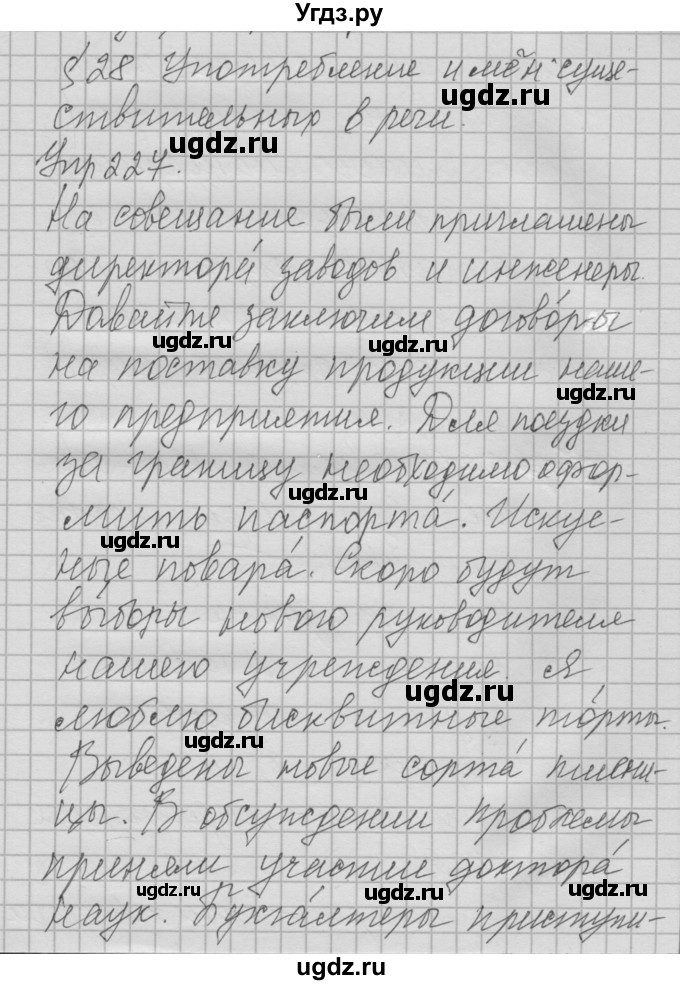 Угдз.ру
§ 28 Употребление имён суще-
ugdz.ru
ствительных в речи.
ugdz.ru
Упр 227.
На совещание были приглашены
ugdz.ru
директора́ заводов и инженеры.
Давайте заключим догово́ры
ugdz.ru ugdz.ru
на поставку продукции наше-
ugdz.ru
го предприятия. Для поездки
за границу необходимо офор-
ugdz.ru
мить паспорта́. Искус-
ugdz.ru
ные повара́. Скоро будут
вы́боры нового руководителя
нашего учреждения. Я
ugdz.ru
люблю бисквитные то́рты.
ugdz.ru ugdz.ru
Выведены новые сорта́ пшени-
цы. В обсуждении проблемы
приняли участие доктора́
ugdz.ru ugdz.ru ugdz.ru
наук. Бухга́лтеры приступи-
ugdz.ru